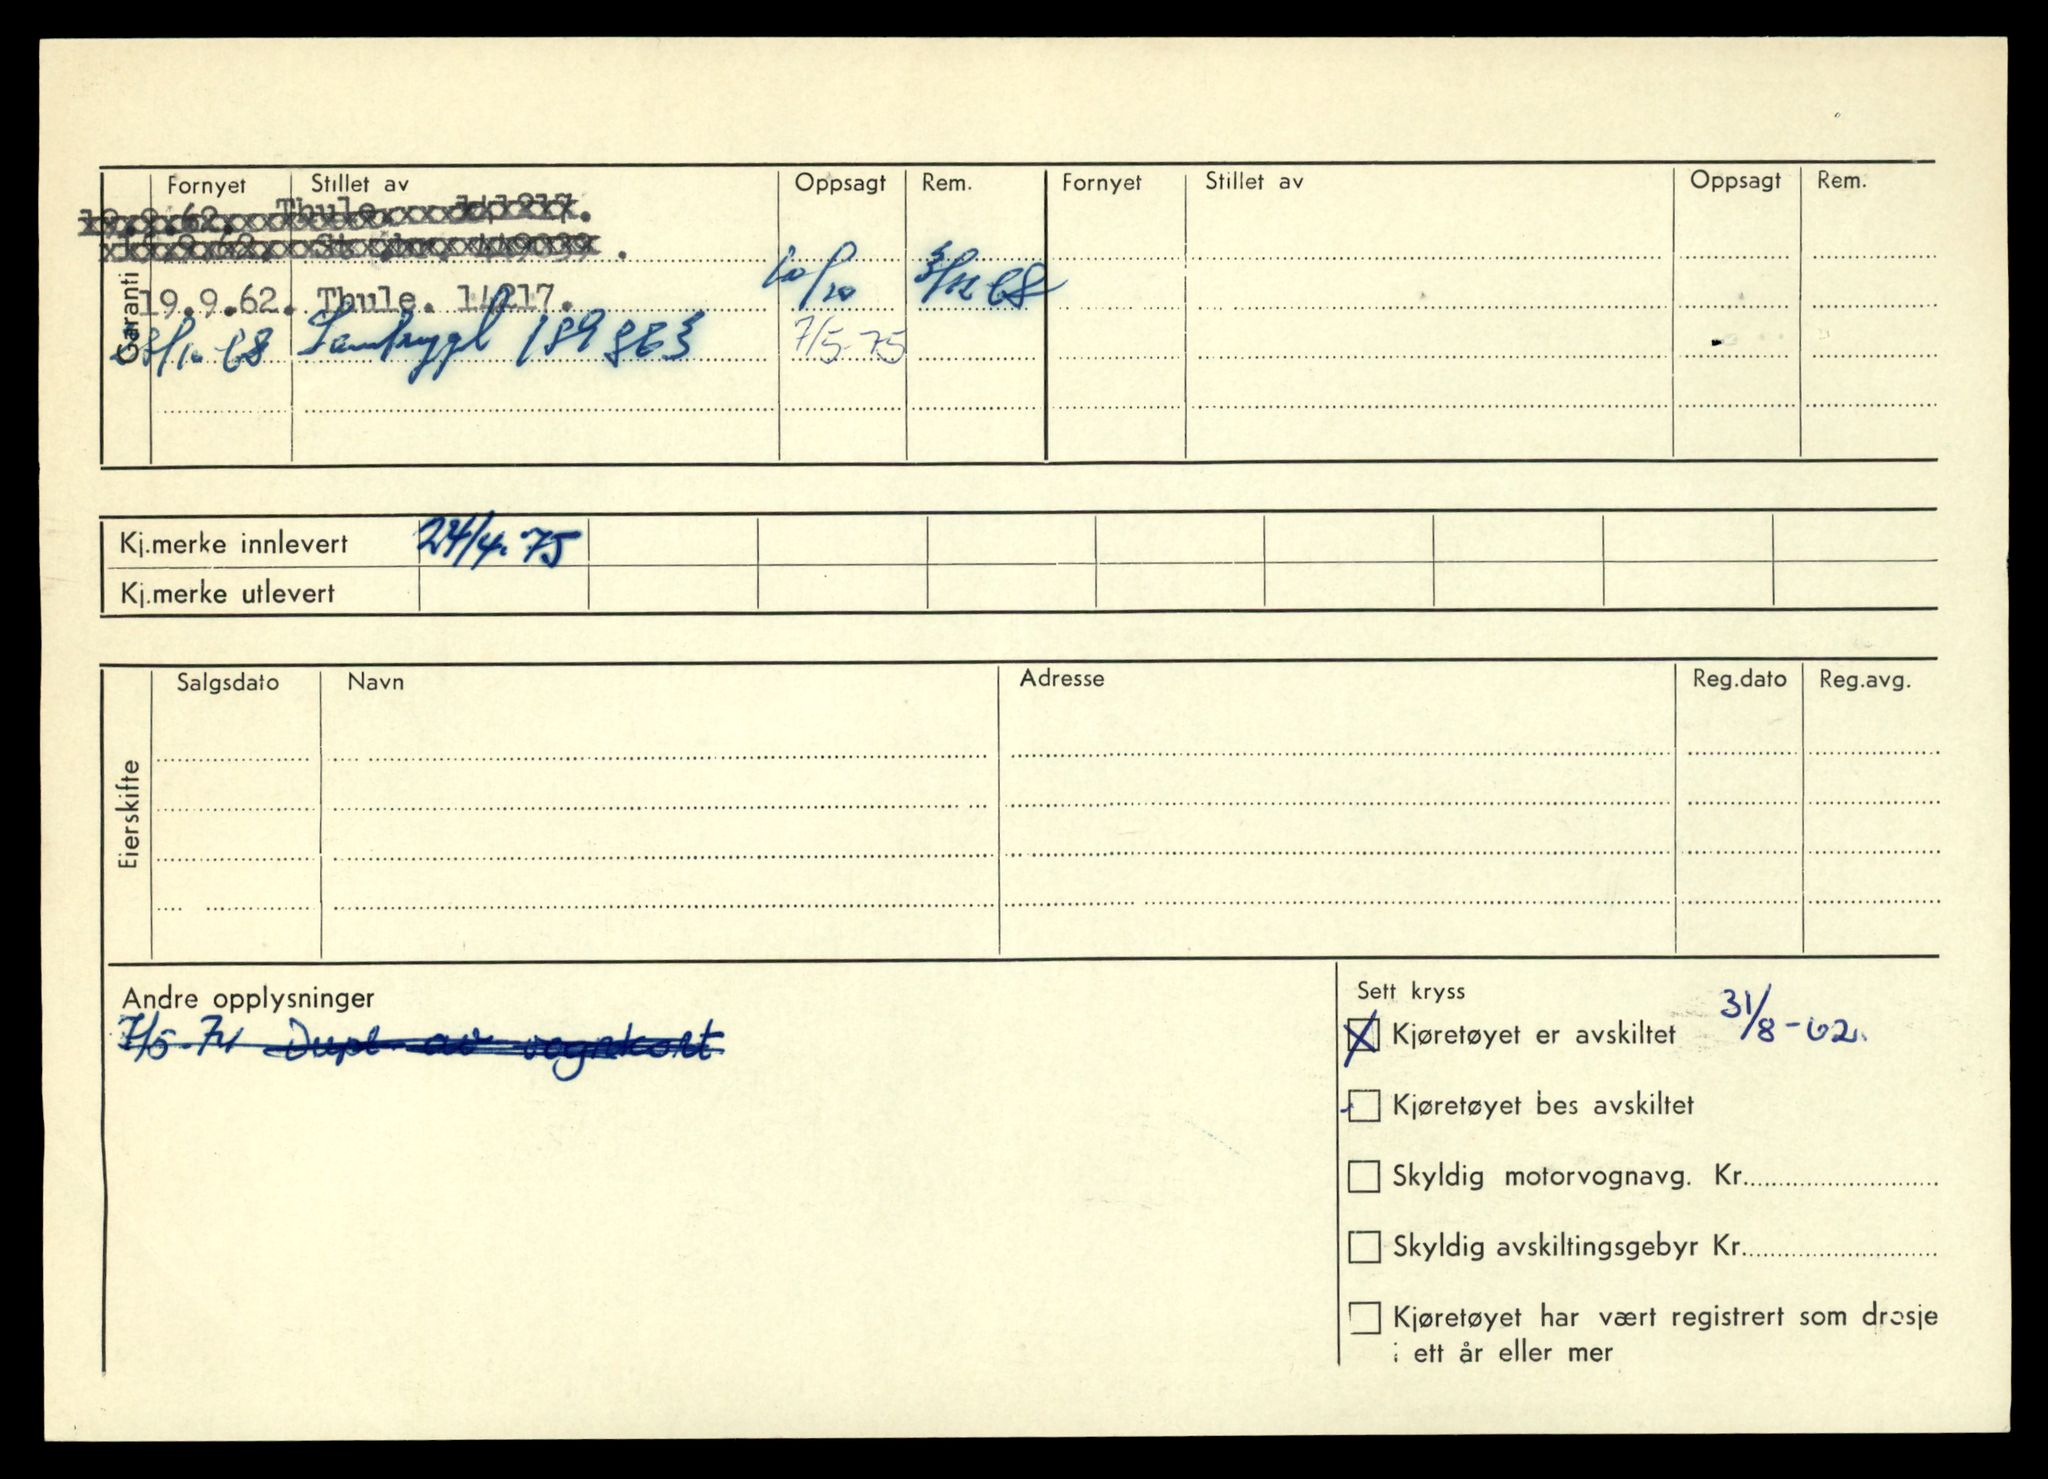 Fornyet Stillet av Oppsagt Rem. Fornyet Stillet av Oppsagt Rem.
19.9.62. Thule
Garanti
19.9.62. Thule. 14217. 3/12 68
28/10-68 Samtrygd 189863 7/5-75
Kj.merke innlevert 24/4.75
Kj.merke utlevert
Salgsdato Navn Adresse Reg.dato Reg.avg.
Eierskifte
Andre opplysninger
7/5-71 Dupl. av vognkort
Sett kryss
X Kjøretøyet er avskiltet 31/8-62.
Kjøretøyet bes avskiltet
Skyldig motorvognavg. Kr.
Skyldig avskiltingsgebyr Kr.
Kjøretøyet har vært registrert som drosje
i ett år eller mer